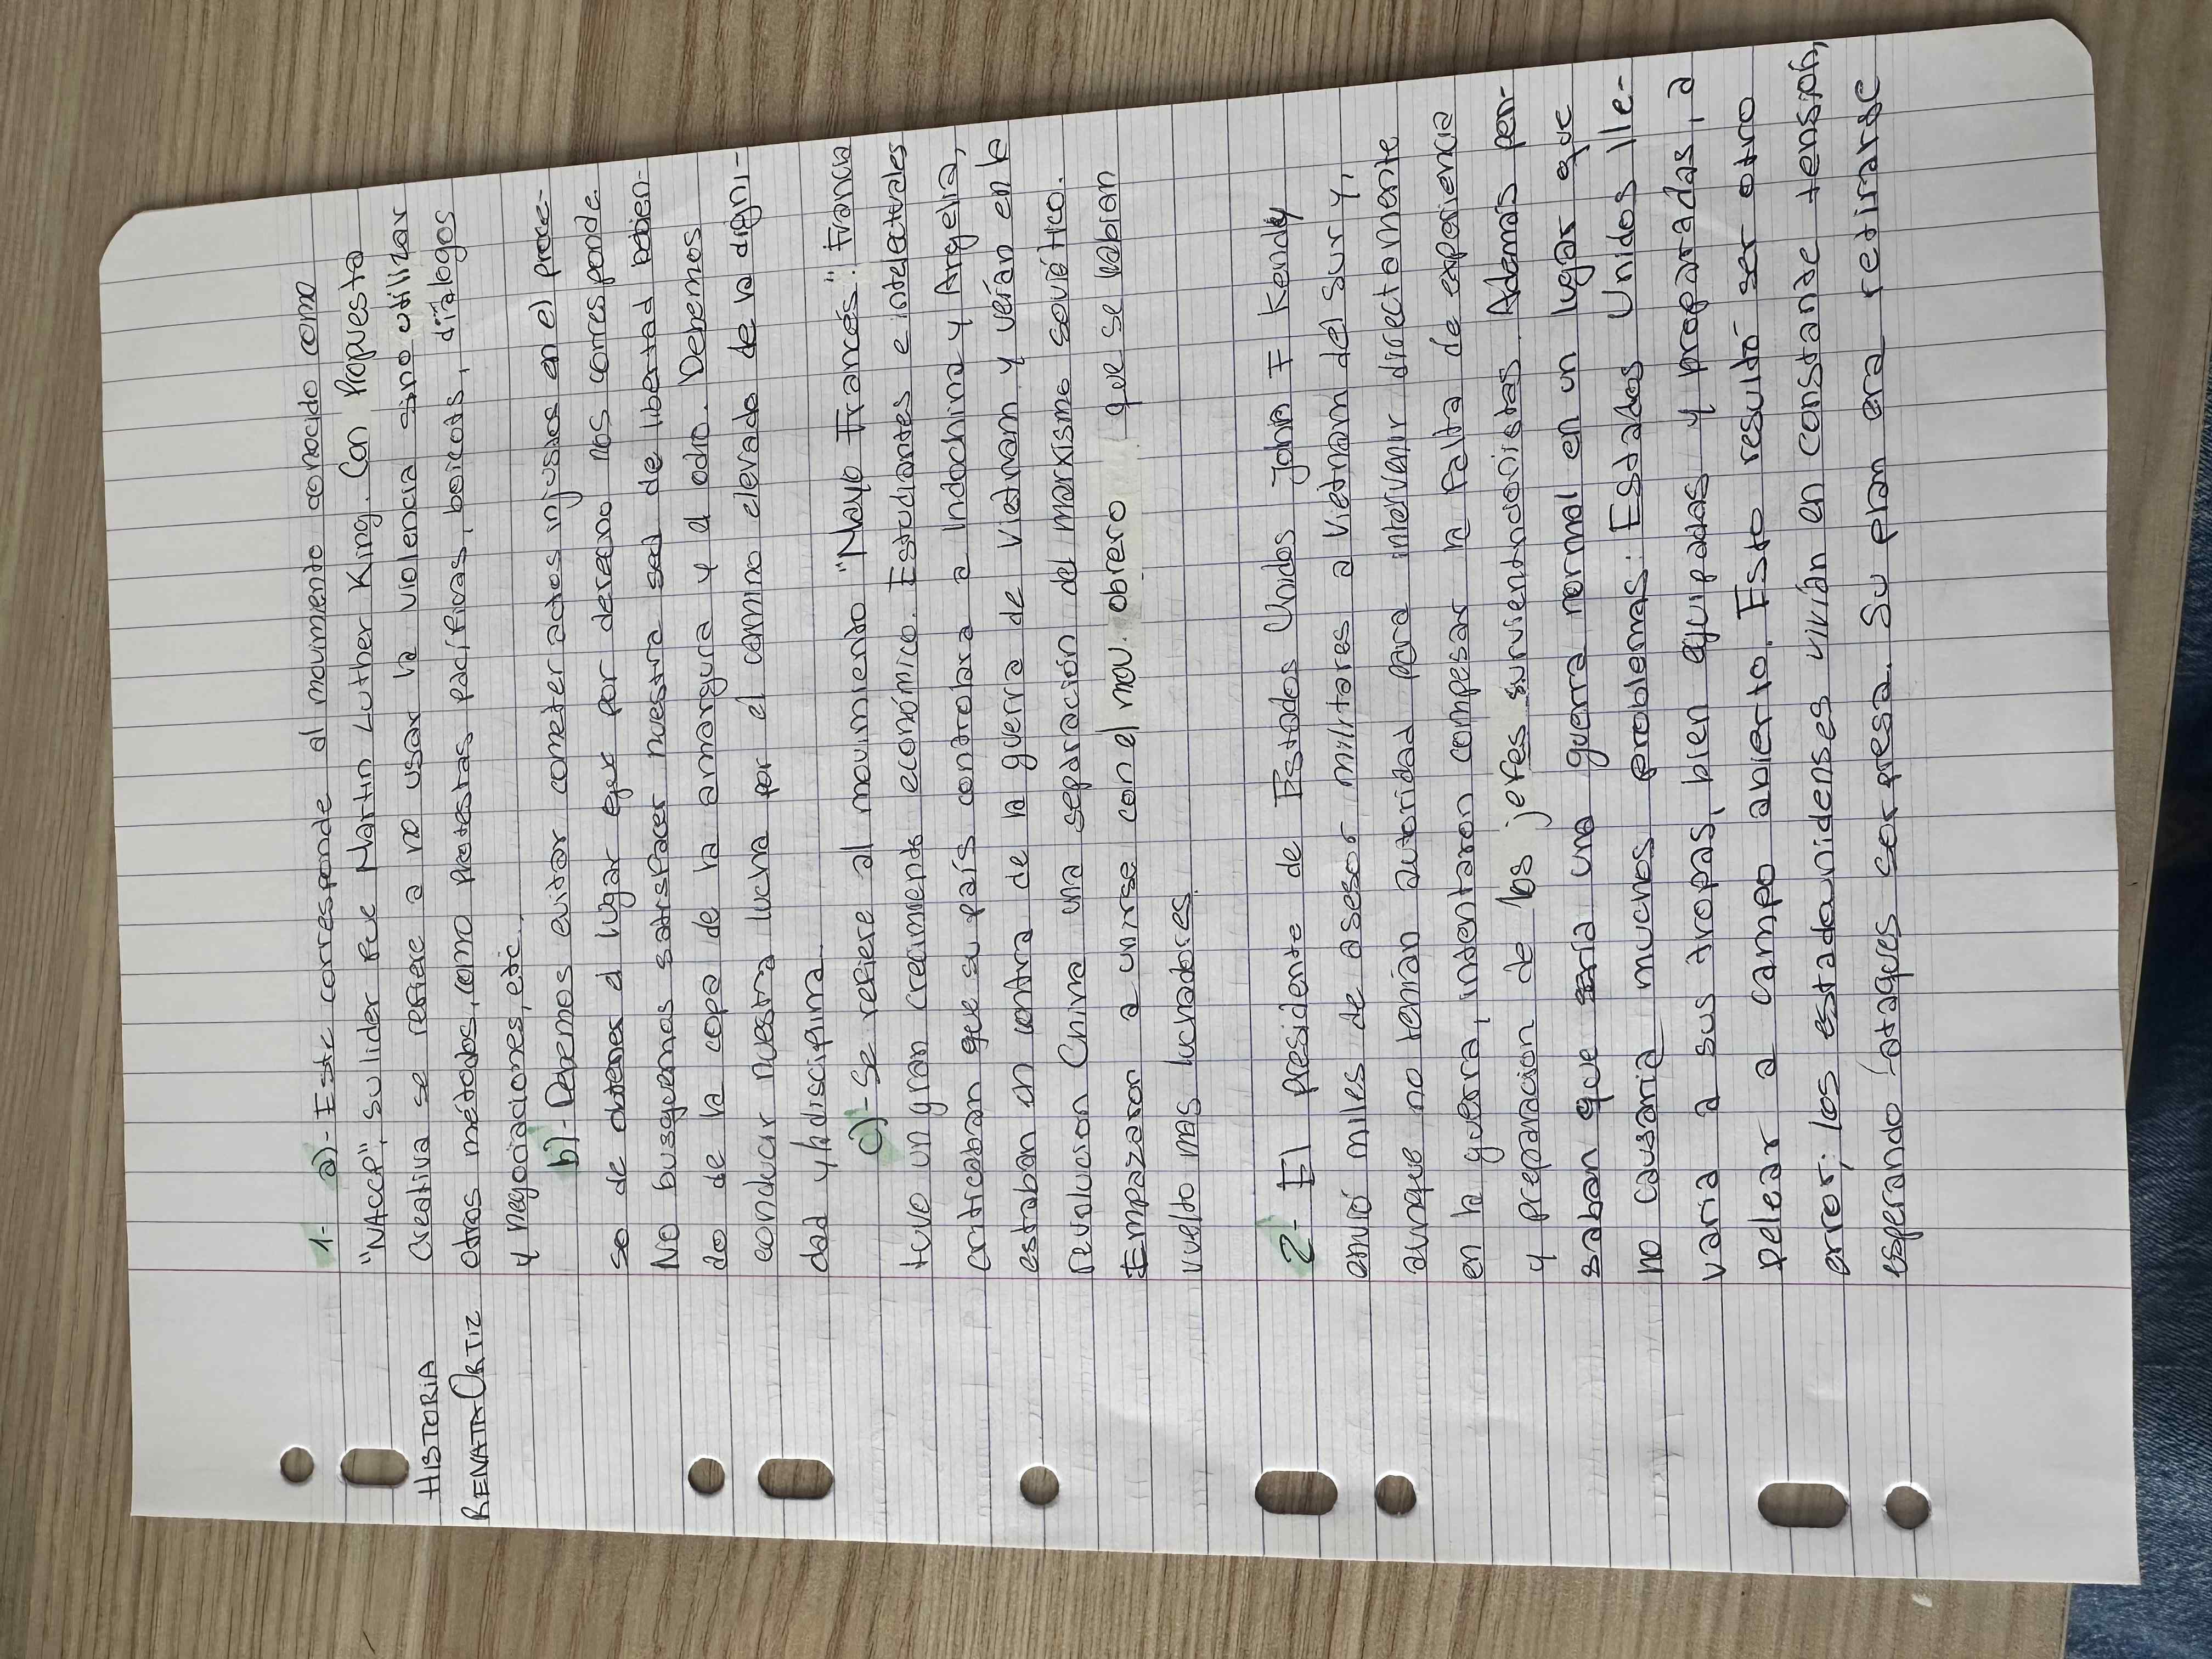 HISTORIA
RENATA ORTIZ
1- a)- Este corresponde al movimiento conocido como
"NACCP", su lider fue Martin Luther King. Con Propuesta
Creativa se refiere a no usar la violencia sino utilizar
otros métodos, como protestas pacíficas, boicots, diálogos
y negociaciones, etc.
b)- Debemos evitar cometer actos injustos en el proce-
so de obtener el lugar que por derecho nos corresponde.
No busquemos satisfacer nuestra sed de libertad bebien-
do de la copa de la amargura y el odio. Debemos
conducir nuestra lucha por el camino elevado de la digni-
dad y la disciplina
c)- Se refiere al movimiento "Mayo Francés". Francia
tuvo un gran crecimiento económico. Estudiantes e intelectuales
criticaban que su país controlara a Indochina y Argelia,
estaban en contra de la guerra de Vietnam y veían en la
revolucion China una separación del marxismo soviético.
Empezaron a unirse con el mov. obrero que se habian
vuelto mas luchadores.
2- El presidente de Estados Unidos John F Kendy
envió miles de asesor militares a Vietnam del sur y,
aunque no tenían autoridad para intervenir directamente
en la guerra, intentaron compesar la falta de experiencia
y preparacion de los jefes survientnamistas. Además pen-
saban que sería una guerra normal en un lugar que
no causaria muchos problemas: Estados Unidos lle-
varia a sus tropas, bien equipadas y preparadas, a
pelear a campo abierto. Esto resultó ser otro
error; los estadounidenses vivían en constante tensión,
esperando ataques sorpresa. Su plan era retirarse